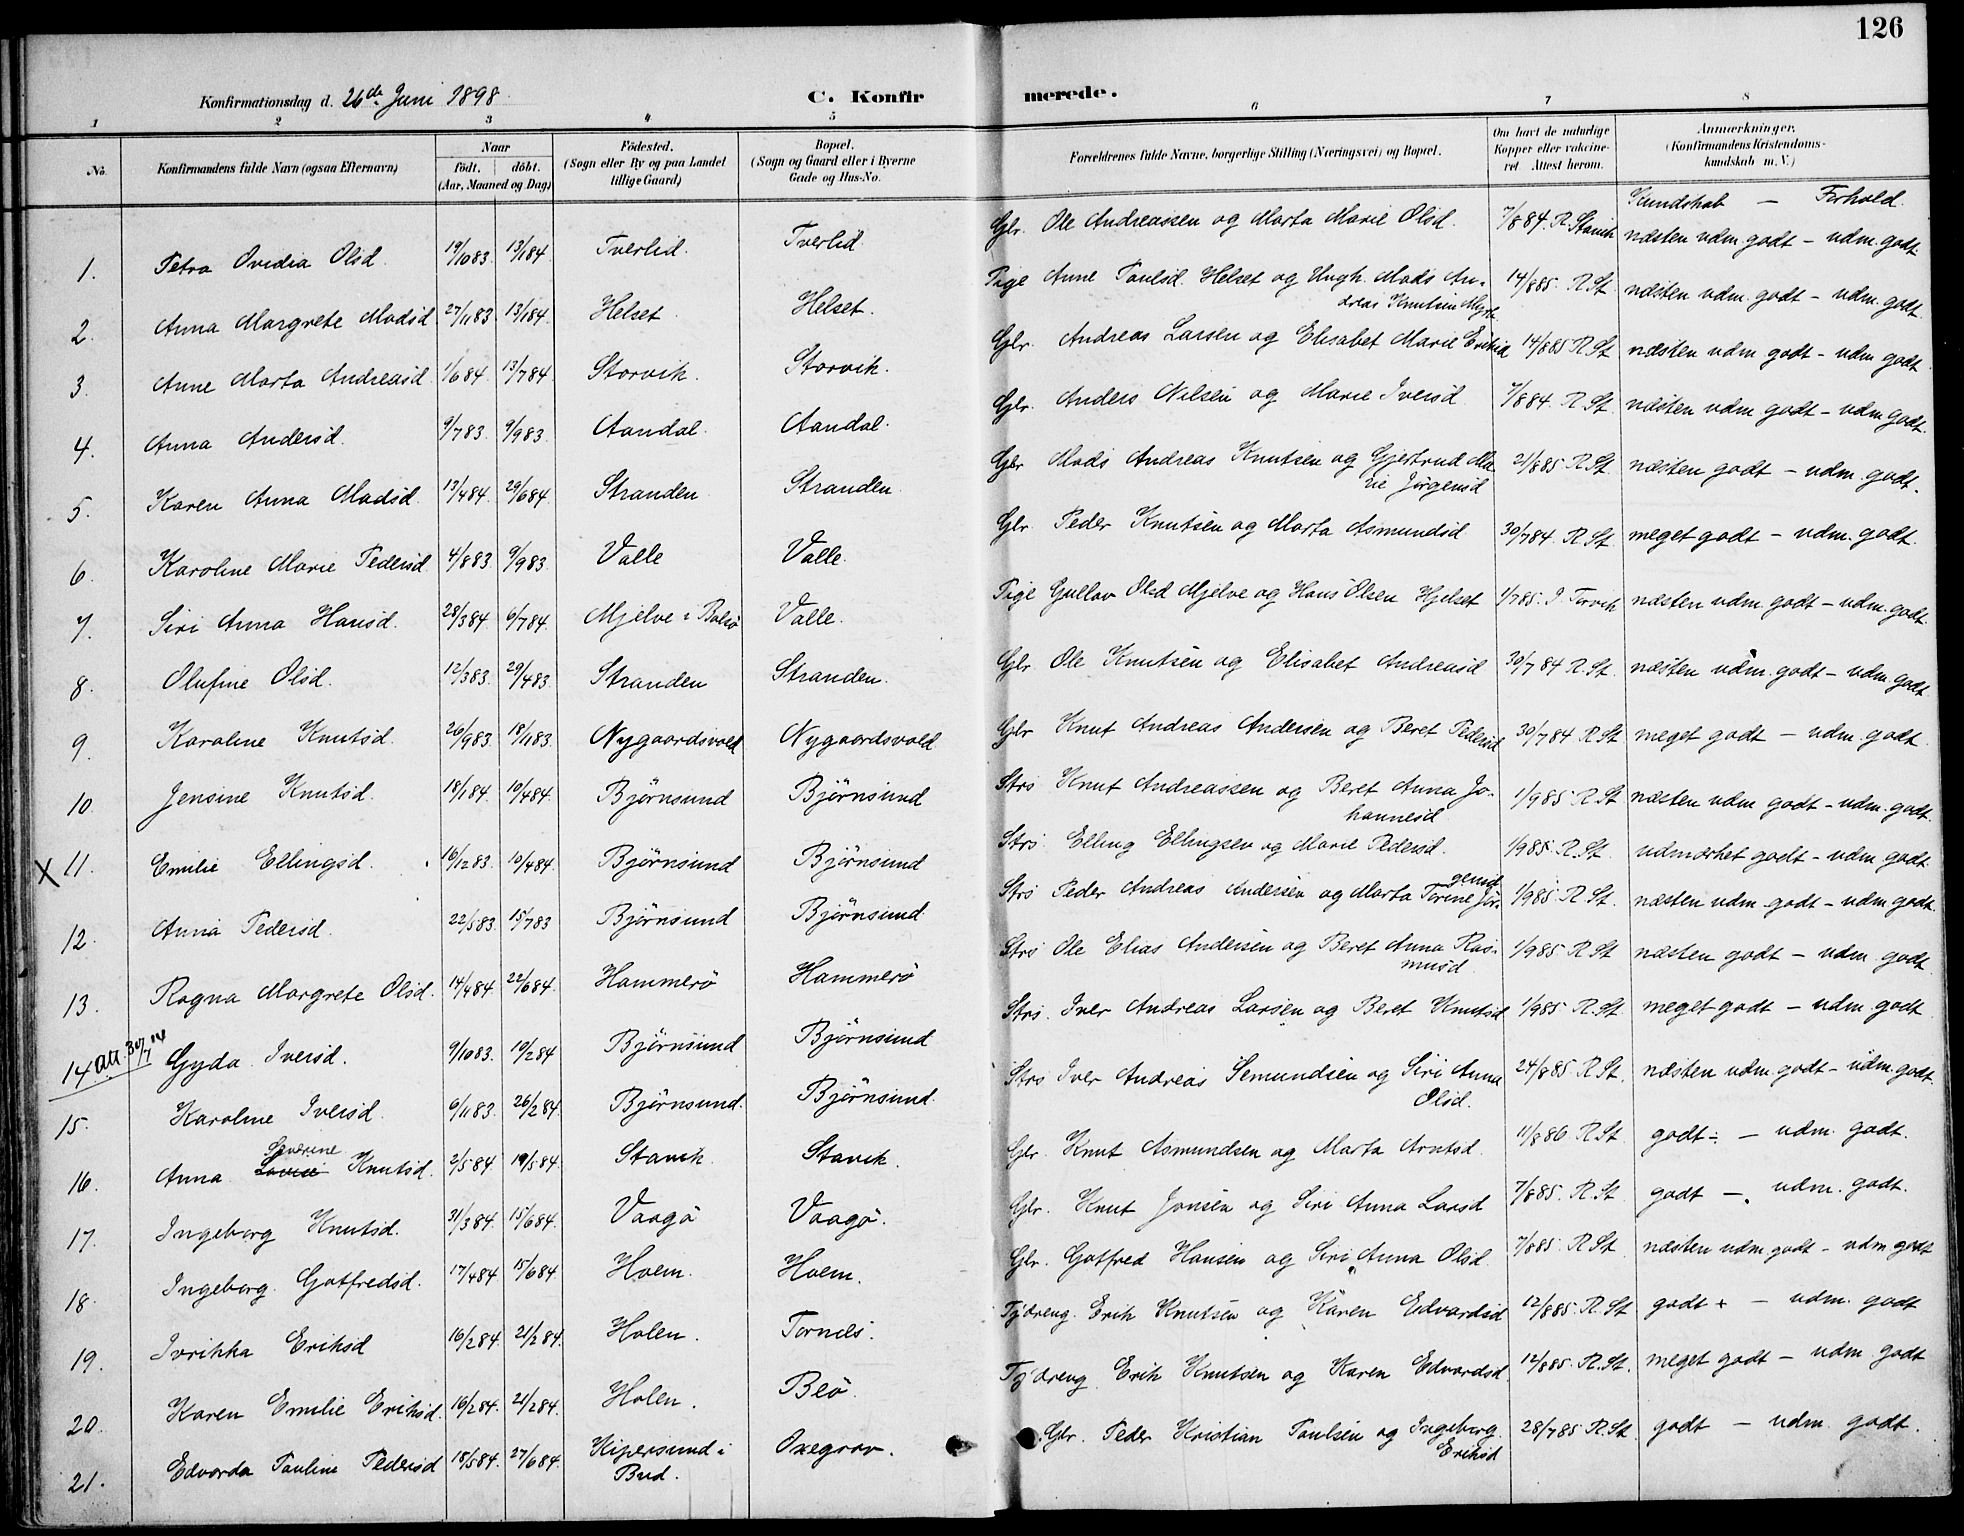 126
Konfirmationsdag d. 26de Juni 1898 C. Konfirmerede.
1 2 3 4 5 6 7 8
No. Konfirmandens fulde Navn (ogsaa Efternavn) Naar født. døbt. (Aar, Maaned og Dag) Fødested. (Sogn eller By og paa Landet tillige Gaard) Bopæl. (Sogn og Gaard eller i Byerne Gade og Hus-No. Forældrenes fulde Navne, borgerlige Stilling (Næringsvei) og Bopæl. Om havt de naturlige Kopper eller vakcineret. Attest herom. Anmærkninger. (Konfirmandens Kristendomskundskab m. V.)
Kundskab — Forhold.
1. Petra Ovidia Olsd. 19/10 83 13/1 84. Tverlid. Tverlid. Gbr. Ole Andreassen og Marta Marie Olsd. 7/8 84. R. Stavik næsten udm. godt - udm. godt
2. Anna Margrete Madsd 27/11 83 13/1 84. Helset. Helset. Pige Anne Paulsd. Helset og Ungk. Mads Andreas Knutsen Myrb. 14/8 85. R. St. næsten udm. godt - udm. godt.
3. Anne Marta Andreasd. 1/6 84. 13/7 84. Storvik. Storvik. Gbr. Andreas Larsen og Elisabet Marie Eriksd 14/8 85 R. St næsten udm. godt - udm godt
4. Anna Andersd. 9/7 83. 9/9 83. Aandal. Aandal. Gbr. Anders Nilsen og Marie Iversd 7/8 84. R. St. næsten udm. godt - udm godt.
5. Karen Anna Madsd. 13/4 84. 29/6 84. Stranden Stranden. Gbr. Mads Andreas Knutsen og Gjertrud Marie Jørgensd 21/8 85 R. St. næsten godt - udm. godt.
6. Karoline Marie Pedersd. 4/8 83. 9/9 83. Valle Valle. Gbr. Peder Knutsen og Marta Asmundsd 30/7 84. R. St. meget godt - udm. godt.
7. Siri Anna Hansd. 28/3 84. 6/7 84. Mjelve i Bolsø Valle. Pige Gullav Olsd Mjelve og Hans Olsen Hjelset 1/7 85. J. Torvik næsten udm. godt - udm. godt.
8. Olufine Olsd. 12/3 83. 29/4 83. Stranden Stranden. Gbr. Ole Knutsen og Elisabet Andreasd 30/7 84 R. St. næsten udm. godt - udm. godt.
9. Karoline Knutsd. 26/9 83. 18/11 83. Nygaardsvold Nygaardsvold Gbr. Knut Andreas Andersen og Beret Pedersd 30/7 84 R. St. meget godt - udm. godt.
10. Jensine Knutsd. 18/1 84. 10/4 84. Bjørnsund Bjørnsund Strs Knut Andreassen og Beret Anna Johannesd 1/9 85. R. St næsten udm godt - udm. godt.
X 11. Emilie Ellingsd. 16/12 83. 10/4 84. Bjørnsund Bjørnsund Strs. Elling Ellingsen og Marie Pedersd. 1/9 85. R. St. udmærket godt - udm. godt.
12. Anna Pedersd. 22/5 83. 15/7 83 Bjørnsund Bjørnsund. Strs Peder Andreas Andersen og Marta Torine Jørgensd 1/9 85. R. St. næsten udm. godt - udm godt.
13. Ragna Margrete Olsd. 14/4 84. 22/6 84. Hammerö Hammerö Strs Ole Elias Andersen og Beret Anna Rasmusd 1/9 85 R. St næsten godt - udm. godt
14 att. 30/7 14 Gyda Iversd. 9/10 83. 10/2 84. Bjørnsund Bjørnsund Strs. Iver Andreas Larsen og Beret Knutsd 1/9 85 R. St. meget godt - udm. godt
15. Karoline Iversd. 6/11 83. 26/2 84. Bjørnsund. Bjørnsund. Strs Iver Andreas Semundsen og Siri Anna Olsd. 24/8 85 R. St. næsten udm. godt - udm. godt.
16. Anna Severine Knutsd. 2/5 84. 19/5 84. Stavik Stavik. Gbr. Knut Asmundsen og Marta Arntsd. 11/8 86. R. St. godt ÷ - udm. godt.
17. Ingeborg Knutsd. 31/3 84. 15/6 84. Vaagö Vaagö. Gbr. Knut Jonsen og Siri Anna Larsd 7/8 85. R. St. godt -. udm. godt.
18. Ingeborg Gotfredsd. 17/4 84 15/6 84. Hoem. Hoem. Gbr. Gotfred Hansen og Siri Anna Olsd. 7/8 85. R. St næsten udm. godt - udm godt
19. Ivrikka Eriksd 16/2 84. 21/2 84. Holen. Tornes. Tjdreng. Erik Knutsen og Karen Edvardsd 12/8 85. R. St. godt + - udm. godt
20. Karen Emilie Eriksd. 16/2 84. 21/2 84. Holen. Beö. Tjdreng. Erik Knutsen og Karen Edvardsd. 12/8 85. R. St. meget godt - udm. godt
21. Edvarda Pauline Pedersd 18/5 84. 27/6 84. Kipersund i Bud. Oxegrov. Gbr. Peder Kristian Paulsen og Ingeborg Eriksd 28/7 85 R. St. godt - udm. godt.